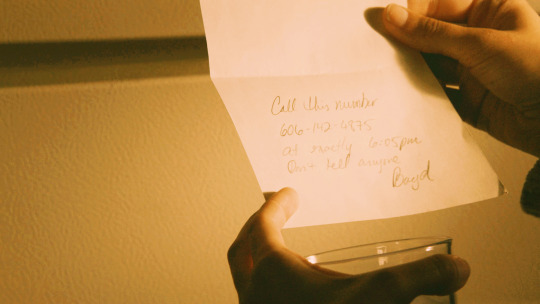 Call this number
606-142-4875
at exactly 6:05pm
Don't tell anyone
Boyd